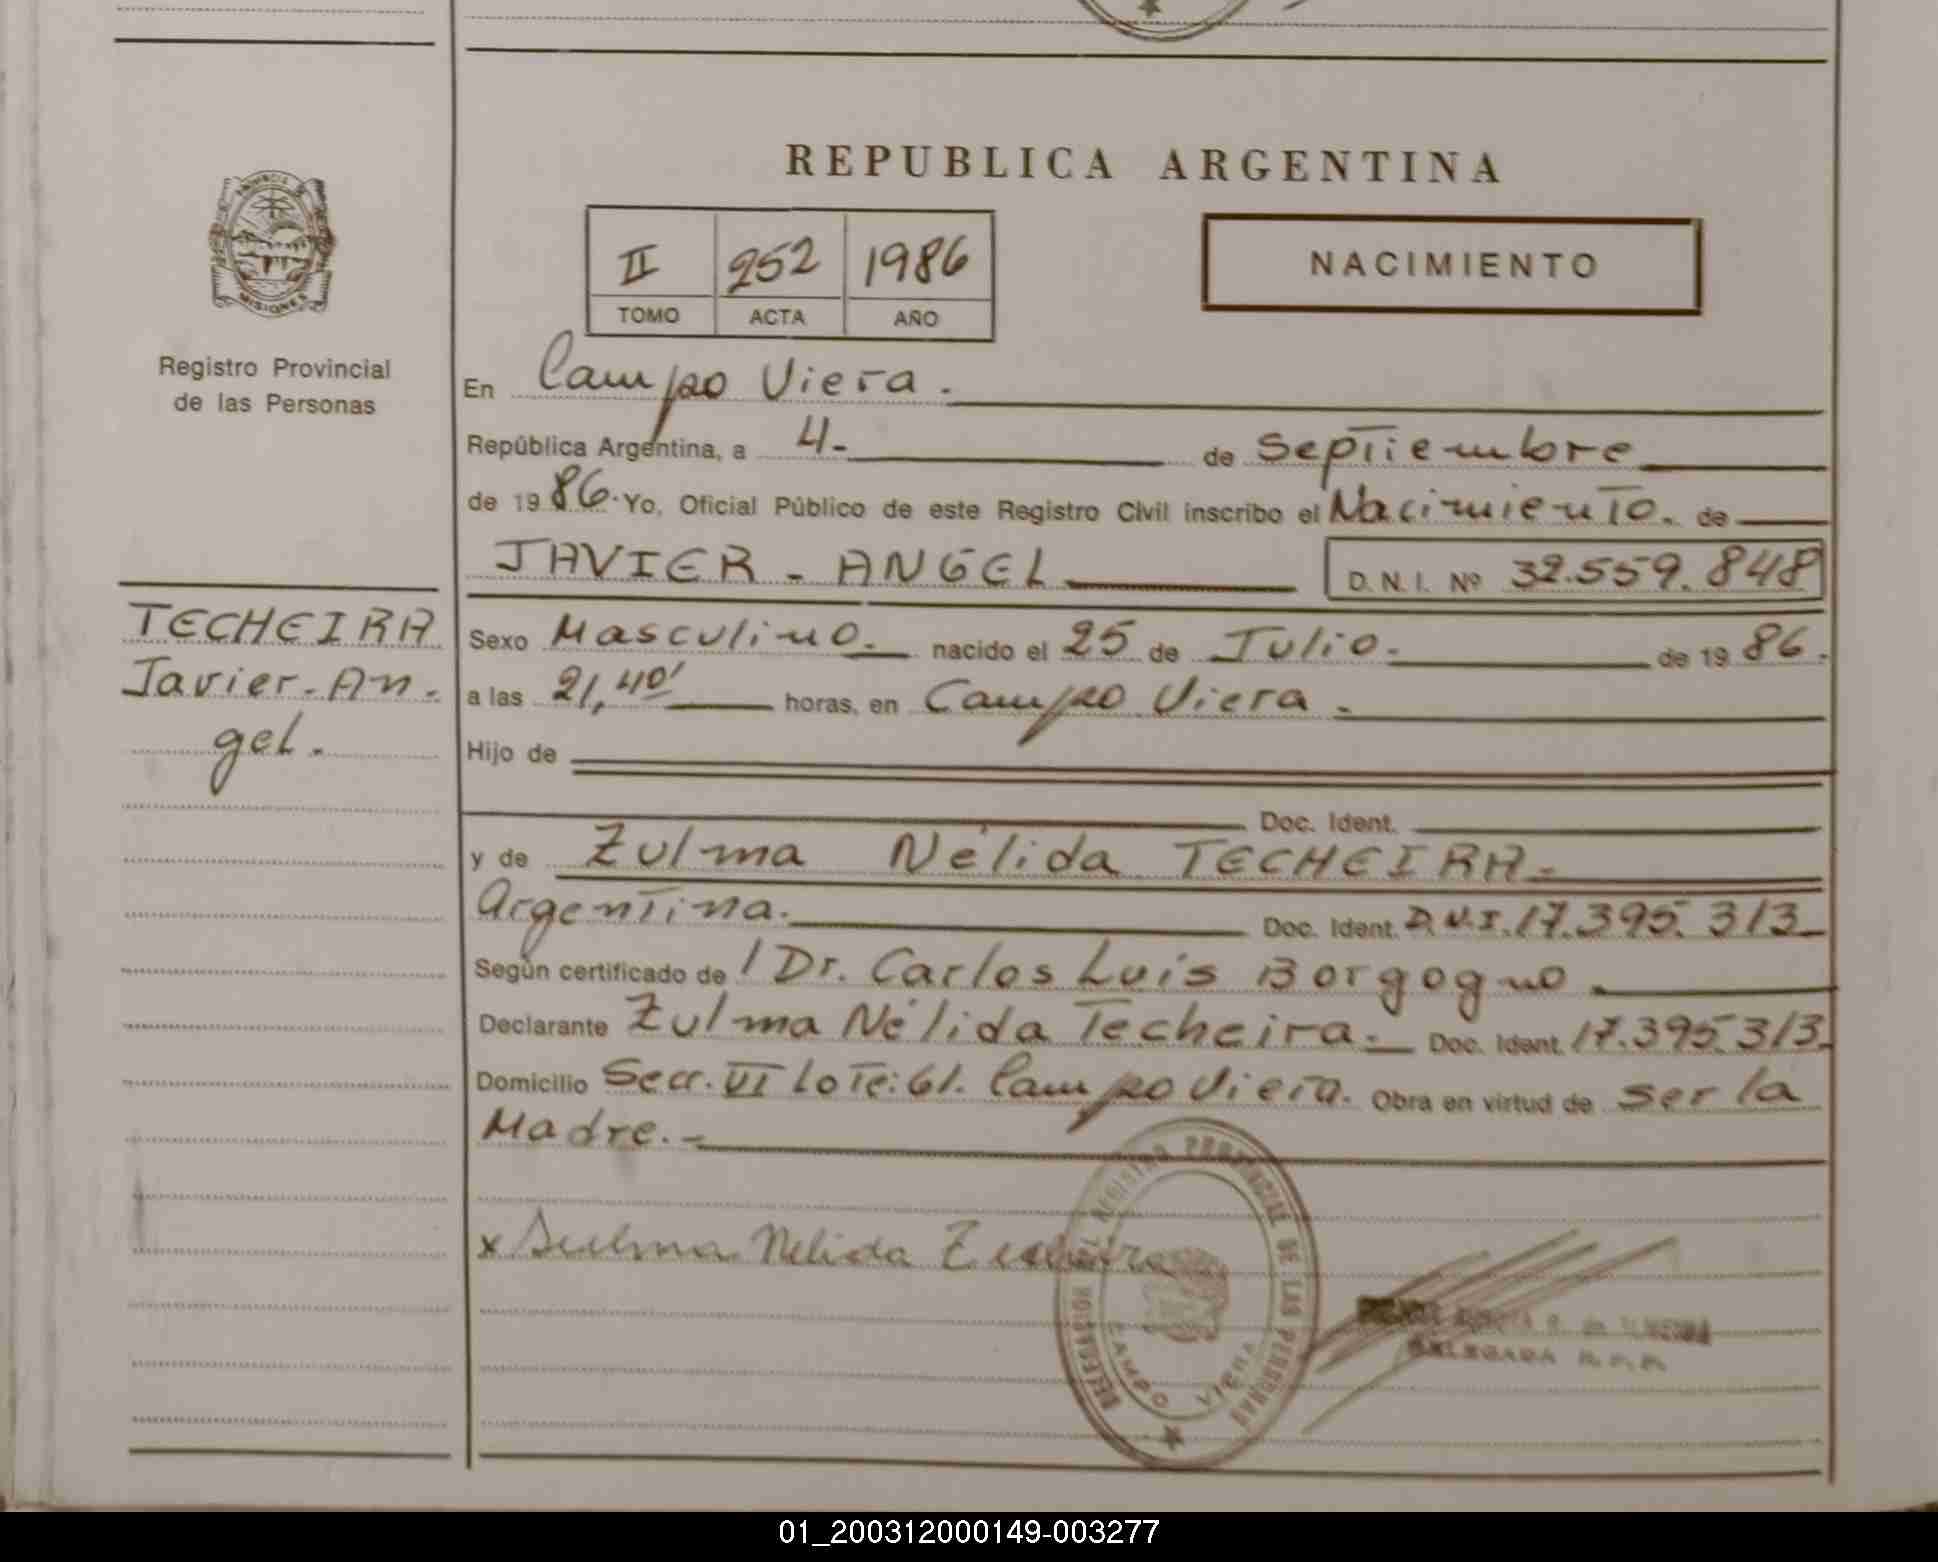 REPUBLICA ARGENTINA
PROVINCIA
MISIONES
Registro Provincial
de las Personas
II 252 1986
TOMO ACTA AÑO
NACIMIENTO
En Campo Viera.
República Argentina, a 4.- de Septiembre
de 1986. Yo, Oficial Público de este Registro Civil inscribo el Nacimiento. de
JAVIER - ANGEL D.N.I. Nº 32.559.848
TECHEIRA
Javier-An-
gel.
Sexo Masculino.- nacido el 25 de Julio.- de 1986.
a las 21,40' horas, en Campo Viera.-
Hijo de
Doc. Ident.
y de Zulma Nélida TECHEIRA.-
Argentina.- Doc. Ident. D.N.I. 17.395.313.-
Según certificado de / Dr. Carlos Luis Borgogno
Declarante Zulma Nélida Techeira.- Doc. Ident. 17.395.313.
Domicilio Secc. VI Lote: 61. Campo Viera. Obra en virtud de ser la
Madre.-
x Sulma Nelida
REGISTRO PROVINCIAL DE LAS PERSONAS
CAMPO VIERA
DELEGADA R.P.P.
01_200312000149-003277